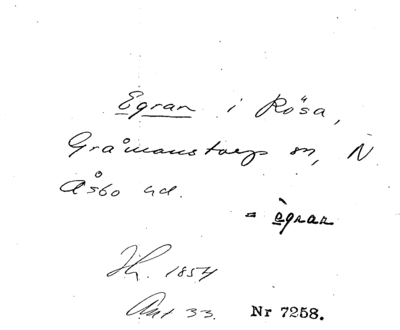 Egran i Rösa,
Gråmanstorps sn, N
Åsbo hd.
= ègran
Lh. 1854
Ant 33. Nr 7258.